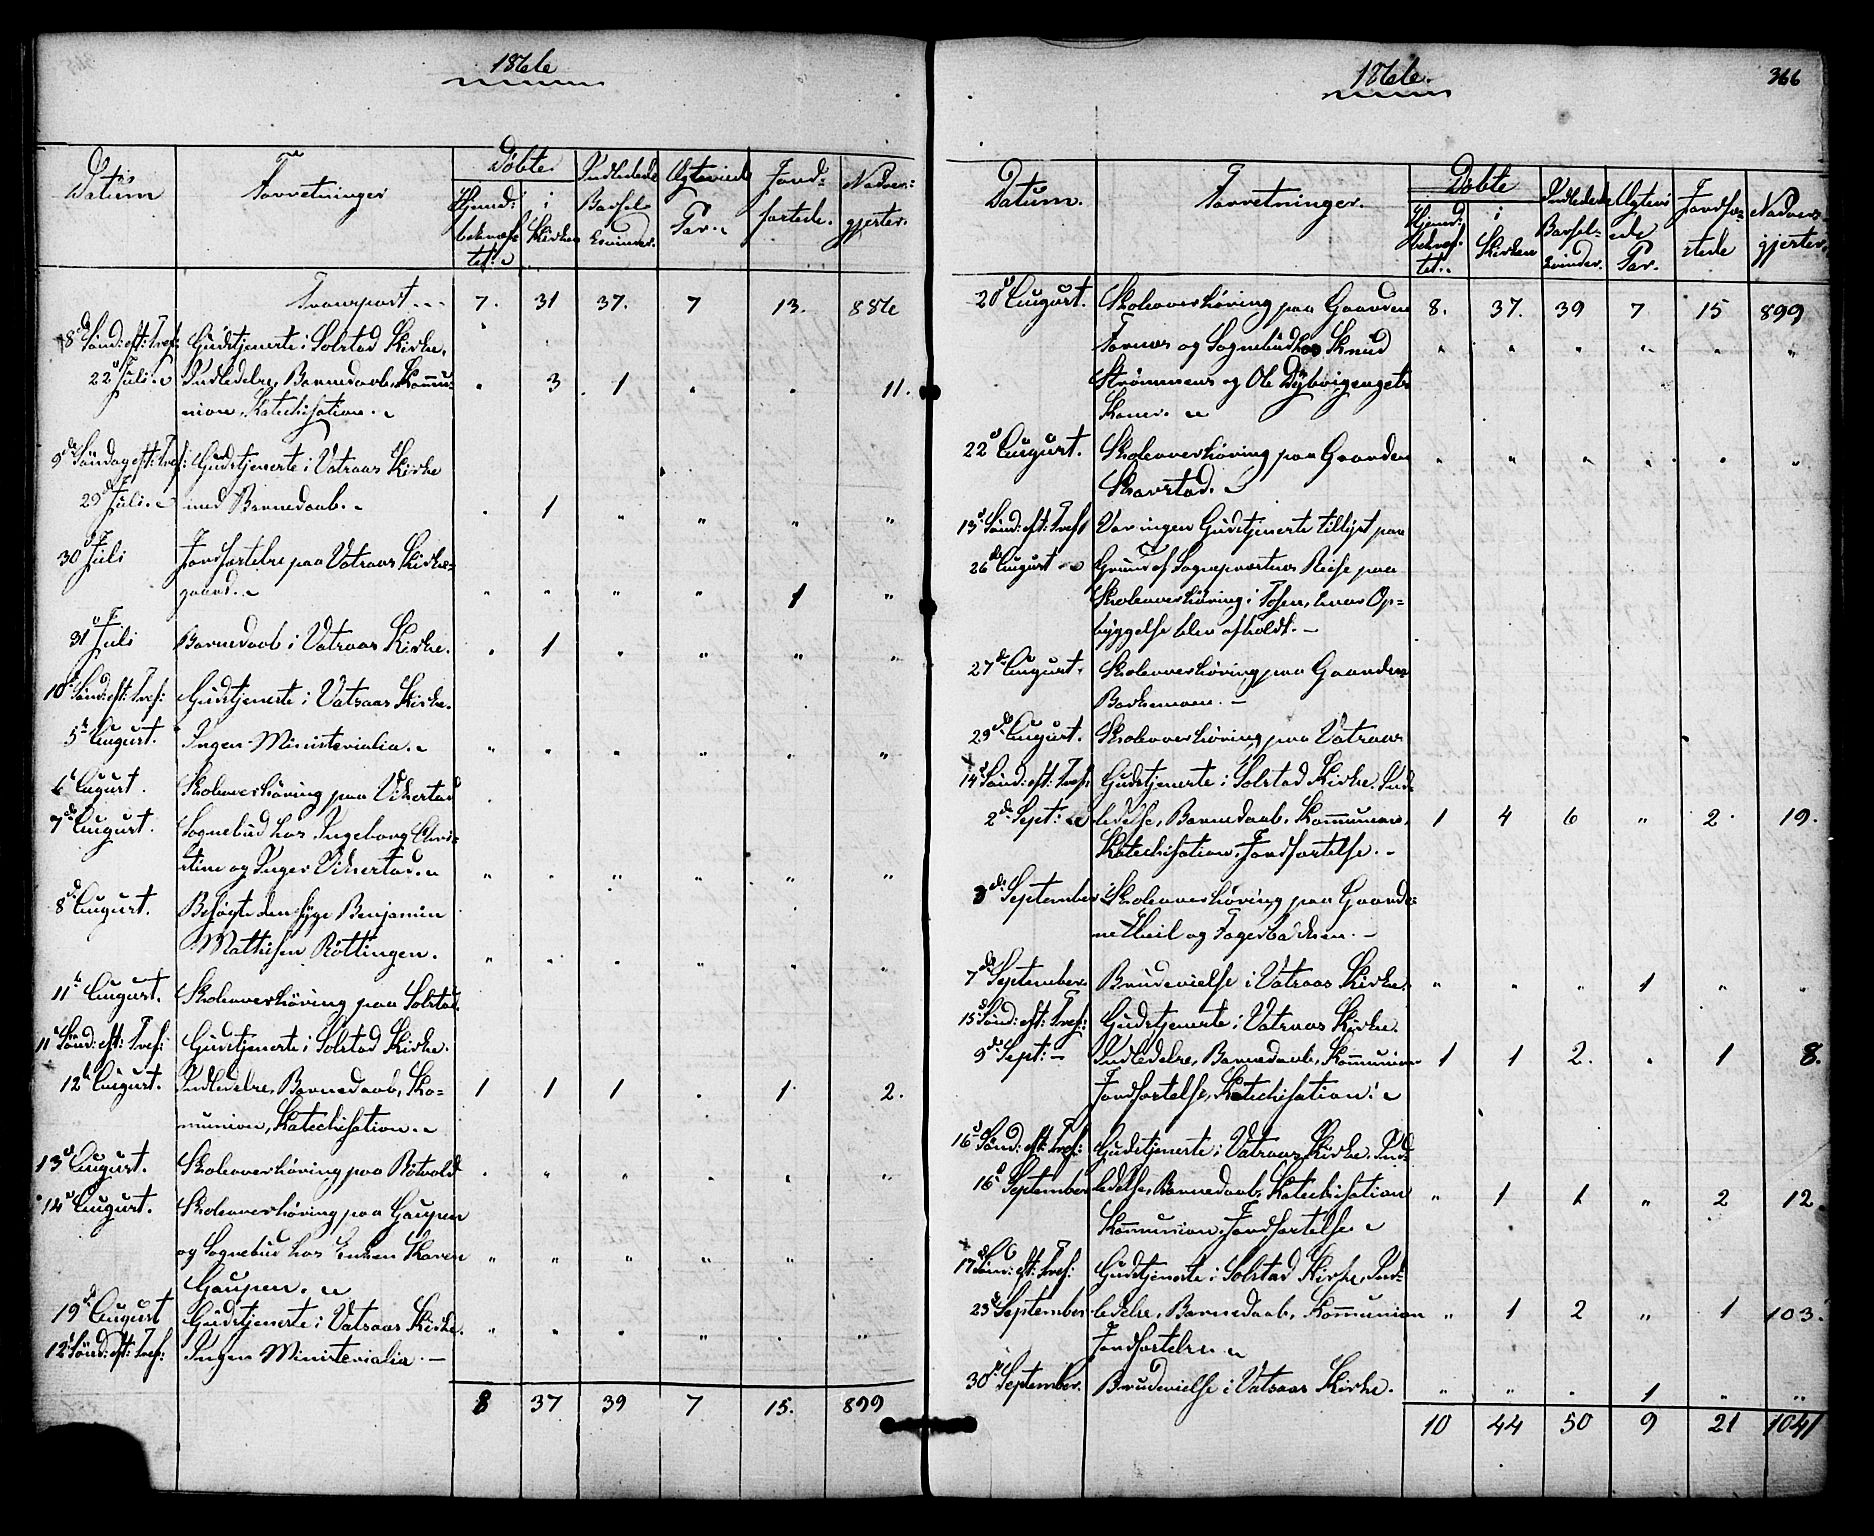 1866
Datum
Forretninger
Døbte
Hjemd:
bekræf-
tet.
i
Kirken
Indledede
Barsel-
kvinder.
Ægteviede
Par.
Jord-
fæstede.
Nadver-
gjester.
Transport . . . 7. 31 37. 7 13. 886
8de Sønd: eft: Tref: Gudstjeneste i Solstad Kirke,
22 Juli. Indledelse, Barnedaab, Kommu- " 3 1 " " 11.
nion, Katechisation.
9de Søndag eft: Tref: Gudstjeneste i Vatsaas Kirke
29de Juli. med Barnedaab. " 1 " " " "
30 Juli Jordfæstelse paa Vatsaas Kirke-
gaard. " " " " 1 "
31 Juli Barnedaab i Vatsaas Kirke. " 1 " " " "
10de Sønd: eft: Tref: Gudstjeneste i Vatsaas Kirke.
5te August. Ingen Ministerialia. " " " " " "
6te August. Skoleoverhøring paa Vikestad
7de August. Sognebud hos Ingeborg Chri-
stine og Inger Vikestad. " " " " " "
8de August. Besøgte den syge Benjamin
Mathisen Röttingen. " " " " " "
11te August. Skoleoverhøring paa Solstad.
11te Sønd: eft: Tref: Gudstjeneste i Solstad Kirke.
12te August. Indledelse, Barnedaab, Ko- 1 1 1 " 1 2.
munion, Katechisation.
13de August. Skoleoverhøring paa Rötvold " " " " " "
14de August. Skoleoverhøring paa Gaupen
og Sognebud hos Enken Karen " " " " " "
Gaupen.
19de August Gudstjeneste i Vatsaas Kirke.
12te Sønd: eft: Tref: Ingen Ministerialia. " " " " " "
8 37 39 7 15. 899
1866.
366
Datum.
Forretninger.
Døbte
Hjemd:
bekræf-
tet.
i
Kirken
Indledede
Barsel-
kvinder.
Ægtevi-
ede
Par.
Jordfæ-
stede
Nadver-
gjester.
20de August. Skoleoverhøring paa Gaarden 8. 37. 39 7 15 899
og Sognebud hos Knud " " " " " "
Strømmens og Ole
Koner.
22de August. Skoleoverhøring paa Gaarden " " " " " "
13de Sønd: eft: Tref: Var ingen Gudstjeneste tillyst paa
26de August Grund af Sognepræstens Reise paa
Skoleoverhøring i hvor Op-
byggelse blev afholdt.
27de August. Skoleoverhøring paa Gaarden
29de August. Skoleoverhøring paa Vatsaas
14de Sønd: eft: Tref: Gudstjeneste i Solstad Kirke. Ind-
2den Sept: ledelse, Barnedaab, Kommunion, 1 4 6 " 2. 19.
Katechisation, Jordfæstelse.
3die September Skoleoverhøring paa Gaarde-
ne og
7de September Brudevielse i Vatsaas Kirke. " " " 1 " "
15de Sønd: eft: Tref: Gudstjeneste i Vatsaas Kirke.
9de Sept: Indledelse, Barnedaab, Kommunion 1 1 2. " 1 8.
Jordfæstelse, Katechisation.
16de Sønd: eft: Tref: Gudstjeneste i Vatsaas Kirke. Ind-
16de September ledelse, Barnedaab, Katechisation " 1 1 " 2 12.
Kommunion, Jordfæstelse.
17de Sønd: eft: Tref: Gudstjeneste i Solstad Kirke, Ind-
23de September ledelse, Barnedaab, Kommunion " 1 2 " 1 103.
Jordfæstelse.
30de September. Brudevielse i Vatsaas Kirke. " " " 1 " "
10 44 50 9 21 1041